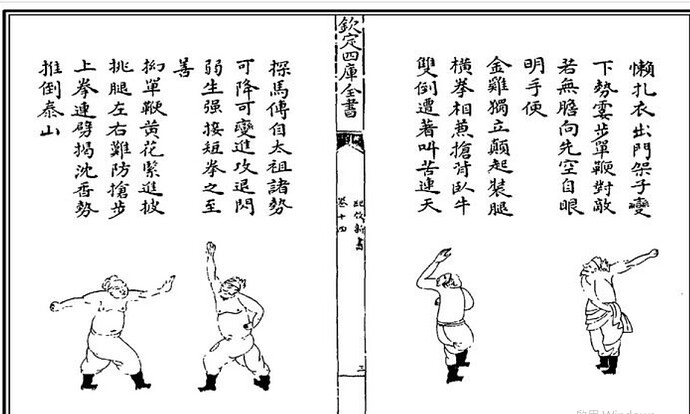 懶扎衣出門架子變
下勢霎步單鞭對敵
若無膽向先空自眼
明手便
金雞獨立顛起裝腿
橫拳相兼搶背臥牛
雙倒遭著叫苦連天
欽定四庫全書
紀效新書
卷十四
探馬傳自太祖諸勢
可降可變進攻退閃
弱生强接短拳之至
善
拗單鞭黃花緊進披
挑腿左右難防搶步
上拳連劈揭沈香勢
推倒泰山
Windows